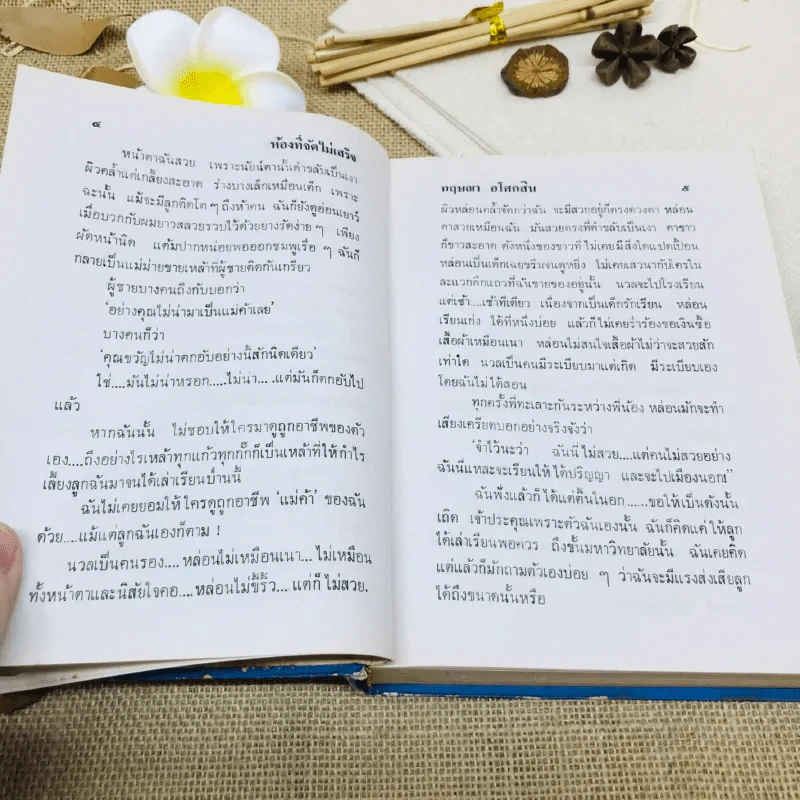 ๔
ห้องที่จัดไม่เสร็จ
หน้าตาฉันสวย เพราะนัยน์ตานั้นดำขลับเป็นเงา
ผิวคล้ำแต่เกลี้ยงสะอาด ร่างบางเล็กเหมือนเด็ก เพราะ
ฉะนั้น แม้จะมีลูกติดโต ๆ ถึงห้าคน ฉันก็ยังดูอ่อนเยาว์
เมื่อบวกกับผมยาวสลวยรวบไว้ด้วยยางรัดง่าย ๆ เพียง
ผัดหน้านิด แต้มปากหน่อยพอออกชมพูเรื่อ ๆ ฉันก็
กลายเป็นแม่ม่ายขายเหล้าที่ผู้ชายติดกันเกรียว
ผู้ชายบางคนถึงกับบอกว่า
‘อย่างคุณไม่น่ามาเป็นแม่ค้าเลย’
บางคนก็ว่า
‘คุณขวัญไม่น่าตกอับอย่างนี้สักนิดเดียว’
ใช่....มันไม่น่าหรอก.....ไม่น่า....แต่มันก็ตกอับไป
แล้ว
หากฉันนั้น ไม่ชอบให้ใครมาดูถูกอาชีพของตัว
เอง....ถึงอย่างไรเหล้าทุกแก้วทุกกั๊กก็เป็นเหล้าที่ให้กำไร
เลี้ยงลูกฉันมาจนได้เล่าเรียนป่านนี้
ฉันไม่เคยยอมให้ใครดูถูกอาชีพ ‘แม่ค้า’ ของฉัน
ด้วย....แม้แต่ลูกฉันเองก็ตาม !
นวลเป็นคนรอง....หล่อนไม่เหมือนเนา....ไม่เหมือน
ทั้งหน้าตาและนิสัยใจคอ....หล่อนไม่ขี้ริ้ว....แต่ก็ไม่สวย.
กฤษณา อโศกสิน
๕
ผิวหล่อนคล้ำจัดกว่าฉัน จะมีสวยอยู่ก็ตรงดวงตา หล่อน
ตาสวยเหมือนฉัน มันสวยตรงที่ดำขลับเป็นเงา ตาขาว
ก็ขาวสะอาด ดังหนึ่งของขาวที่ไม่เคยมีสิ่งใดแปดเปื้อน
หล่อนเป็นเด็กเฉยขรึมจนดูหยิ่ง ไม่เคยเสวนากับใครใน
ละแวกตึกแถวที่ฉันขายของอยู่นั้น นวลจะไปโรงเรียน
แต่เช้า....เช้าทีเดียว เนื่องจากเป็นเด็กรักเรียน หล่อน
เรียนเก่ง ได้ที่หนึ่งบ่อย แล้วก็ไม่เคยร่ำร้องขอเงินซื้อ
เสื้อผ้าเหมือนเนา หล่อนไม่สนใจเสื้อผ้าไม่ว่าจะสวยสัก
เท่าใด นวลเป็นคนมีระเบียบมาแต่เกิด มีระเบียบเอง
โดยฉันไม่ได้สอน
ทุกครั้งที่ทะเลาะกันระหว่างพี่น้อง หล่อนมักจะทำ
เสียงเครียดบอกอย่างจริงจังว่า
‘จำไว้นะว่า ฉันนี่ไม่สวย....แต่คนไม่สวยอย่าง
ฉันนี่แหละจะเรียนให้ได้ปริญญา และจะไปเมืองนอก!’
ฉันฟังแล้วก็ได้แต่ตื้นในอก....ขอให้เป็นดังนั้น
เถิด เจ้าประคุณเพราะตัวฉันเองนั้น ฉันก็คิดแค่ให้ลูก
ได้เล่าเรียนพอควร ถึงขั้นมหาวิทยาลัยนั้น ฉันเคยคิด
แต่แล้วก็มักถามตัวเองบ่อย ๆ ว่าฉันจะมีแรงส่งเสียลูก
ได้ถึงขนาดนั้นหรือ